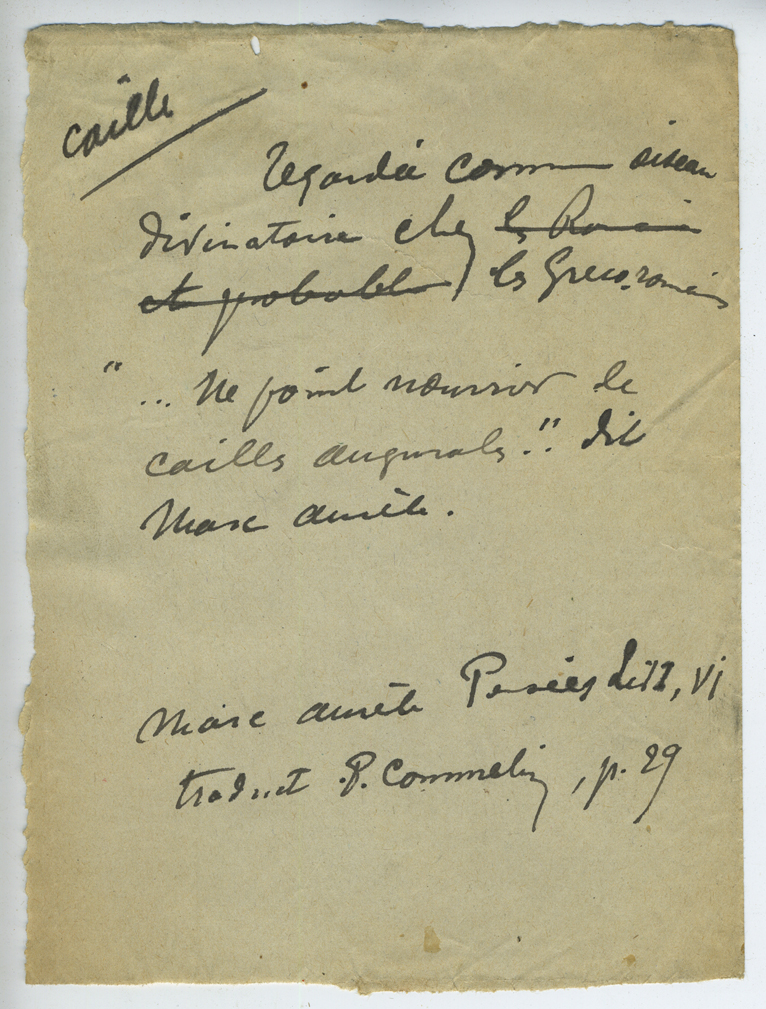 caille
Regardée comme oiseau
divinatoire chez les Romains
et probable les Greco.romains
"... Ne point nourrir de
cailles augurales." dit
Marc Aurèle.
Marc Aurèle Pensées, VI
traduct. P. Commelin, p. 29